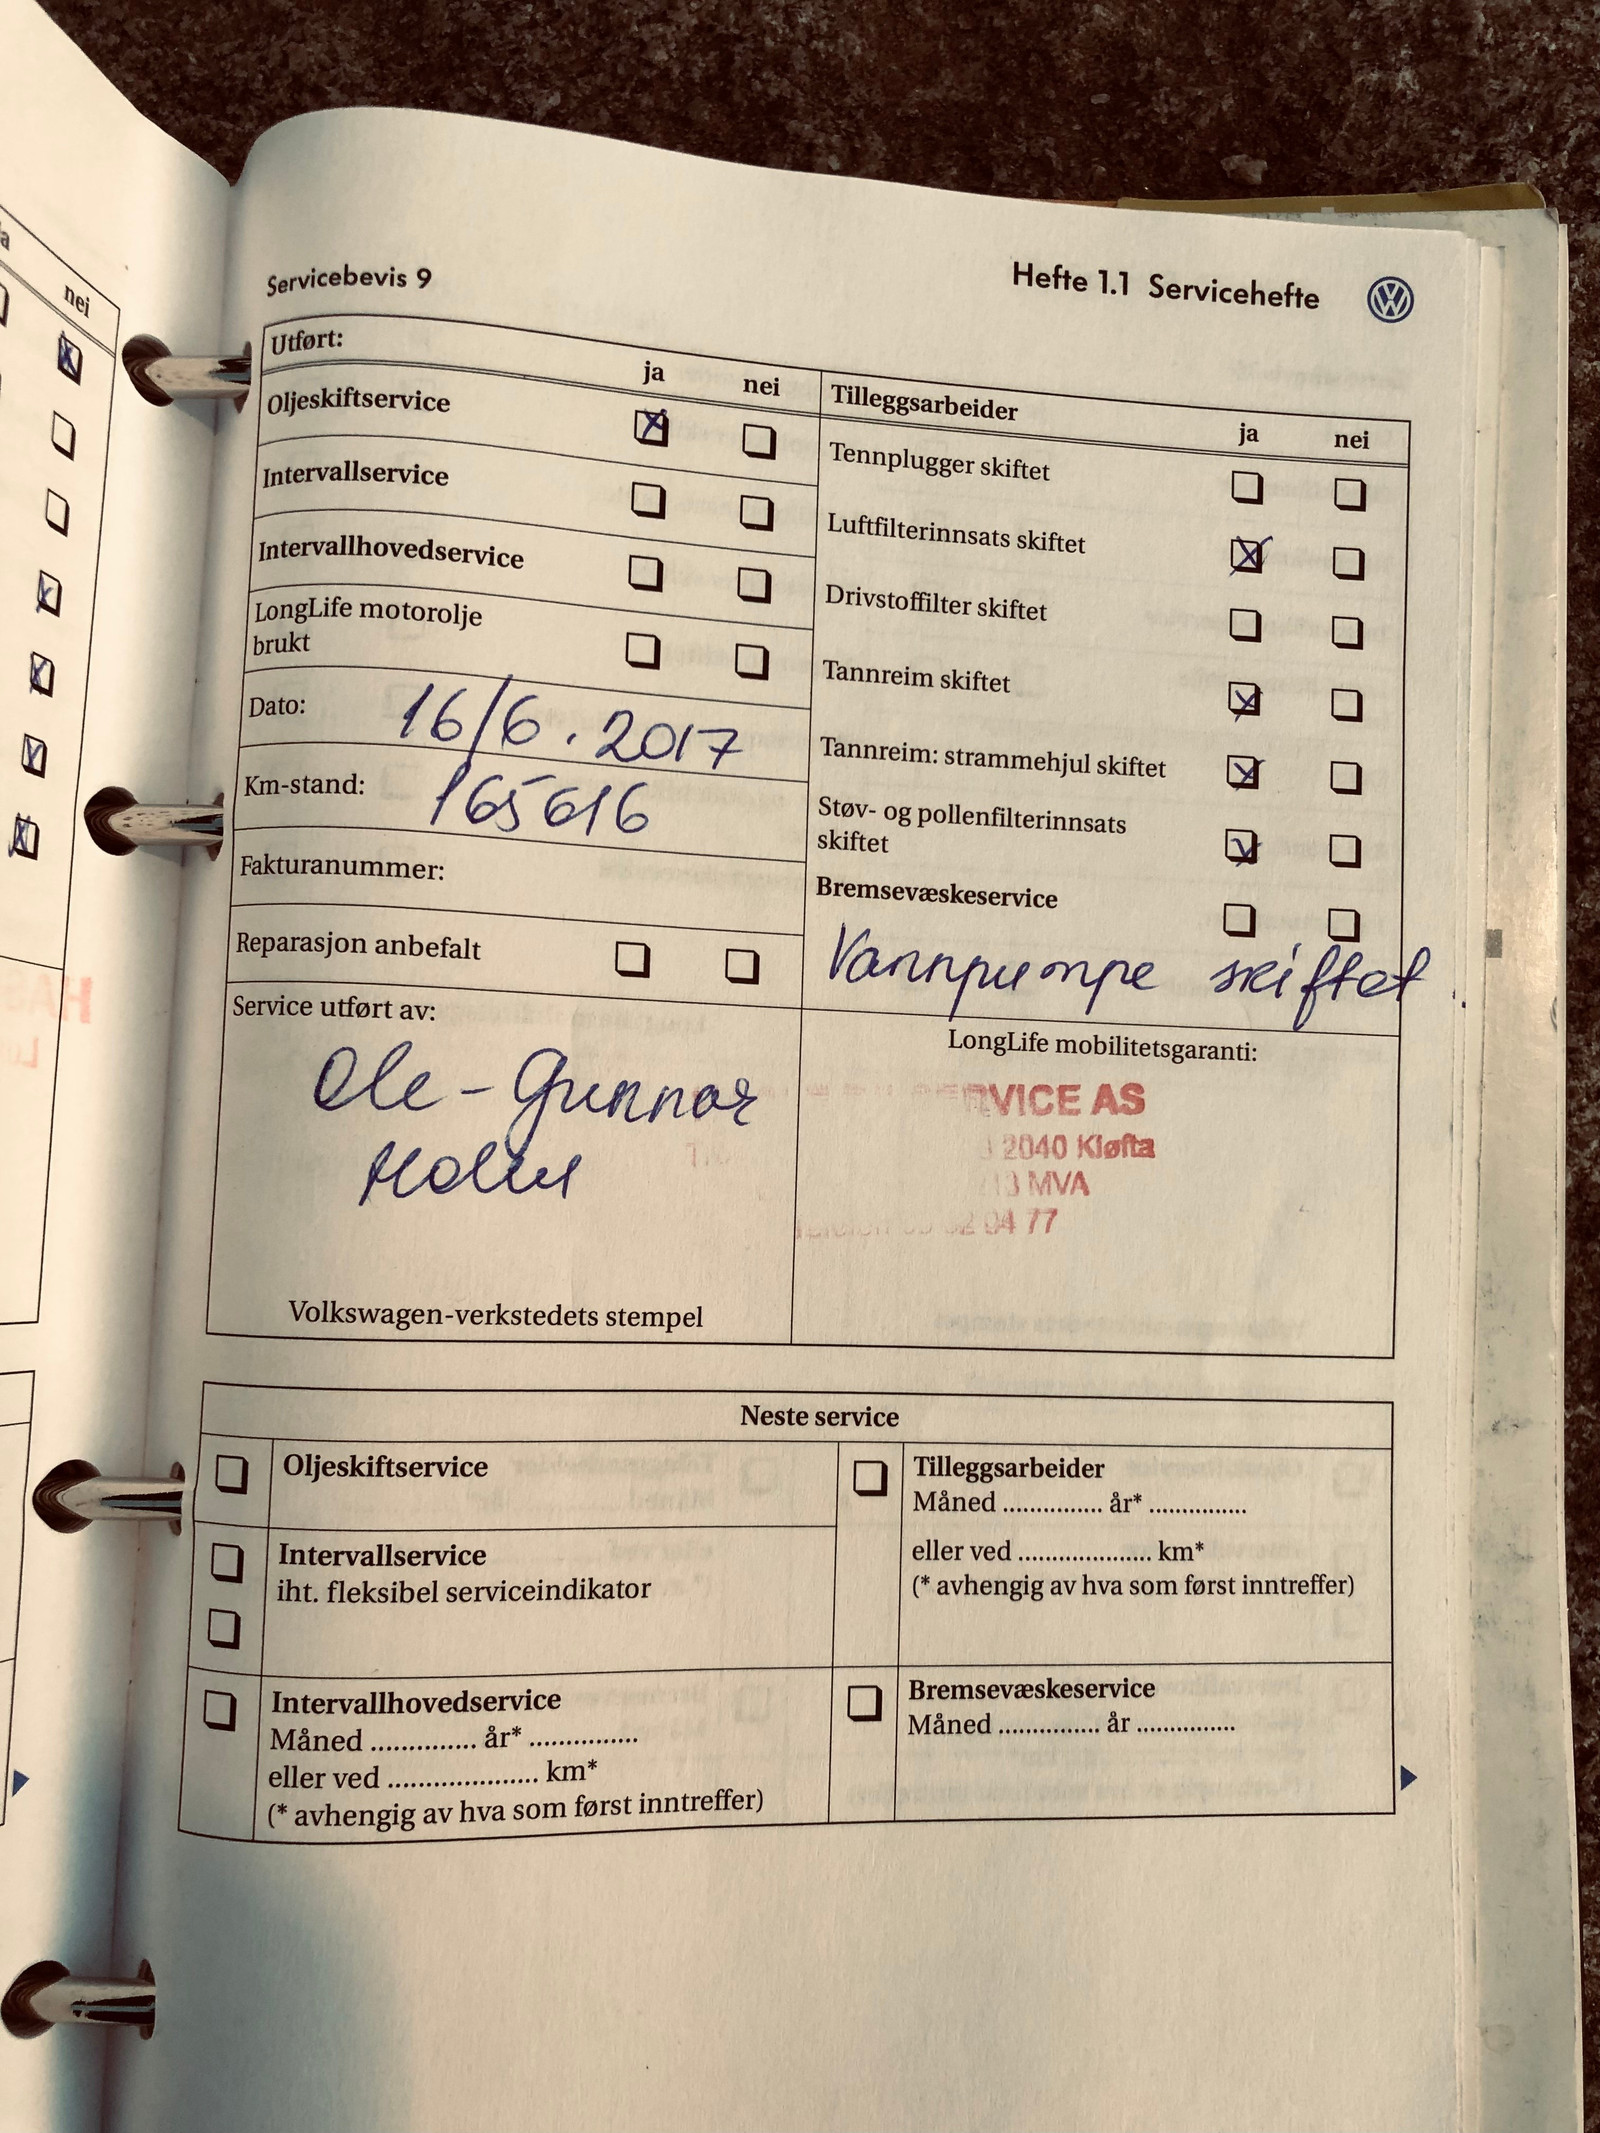 nei
Servicebevis 9
Hefte 1.1 Servicehefte
Utført:
ja nei
Oljeskiftservice
Intervallservice
Intervallhovedservice
LongLife motorolje
brukt
Dato: 16/6.2017
Km-stand: 165616
Fakturanummer:
Reparasjon anbefalt
Service utført av:
Ole-Gunnar
Volkswagen-verkstedets stempel
Tilleggsarbeider
ja nei
Tennplugger skiftet
Luftfilterinnsats skiftet
Drivstoffilter skiftet
Tannreim skiftet
Tannreim: strammehjul skiftet
Støv- og pollenfilterinnsats
skiftet
Bremsevæskeservice
Vannpumpe skiftet
LongLife mobilitetsgaranti:
RVICE AS
2040 Kløfta
MVA
04 77
Neste service
Oljeskiftservice
Intervallservice
iht. fleksibel serviceindikator
Intervallhovedservice
Måned .............. år* ...............
eller ved ..................... km*
(* avhengig av hva som først inntreffer)
Tilleggsarbeider
Måned .............. år* ..............
eller ved ................... km*
(* avhengig av hva som først inntreffer)
Bremsevæskeservice
Måned .............. år ..............